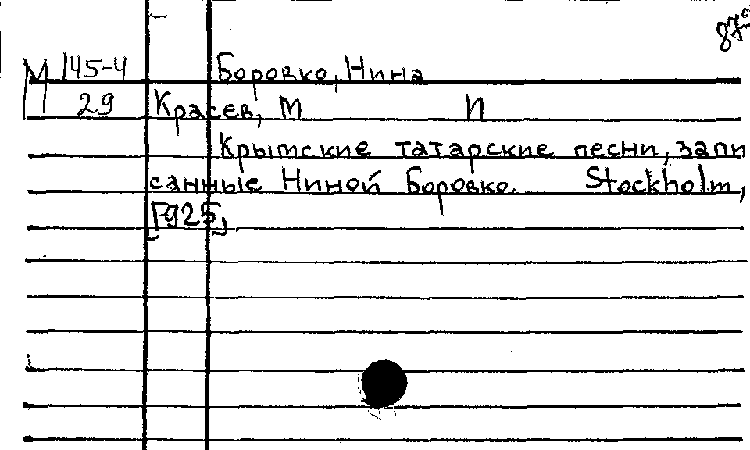 87
М 145-4 Боровко, Нина
29 Красев, М И
Крымские татарские песни, запи
санные Ниной Боровко. Stockholm,
[1925]